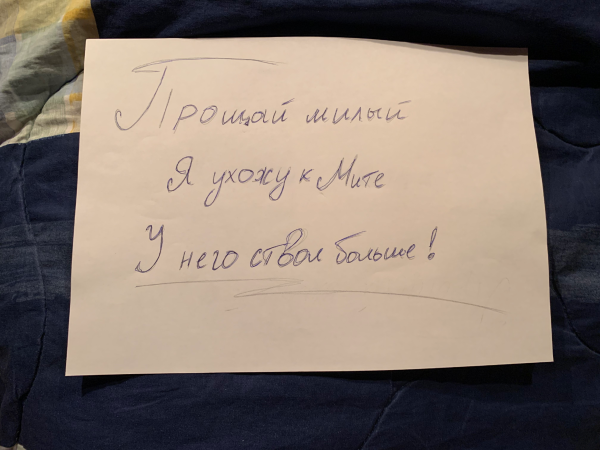 Прощай милый
Я ухожу к Мите
У него ствол больше!